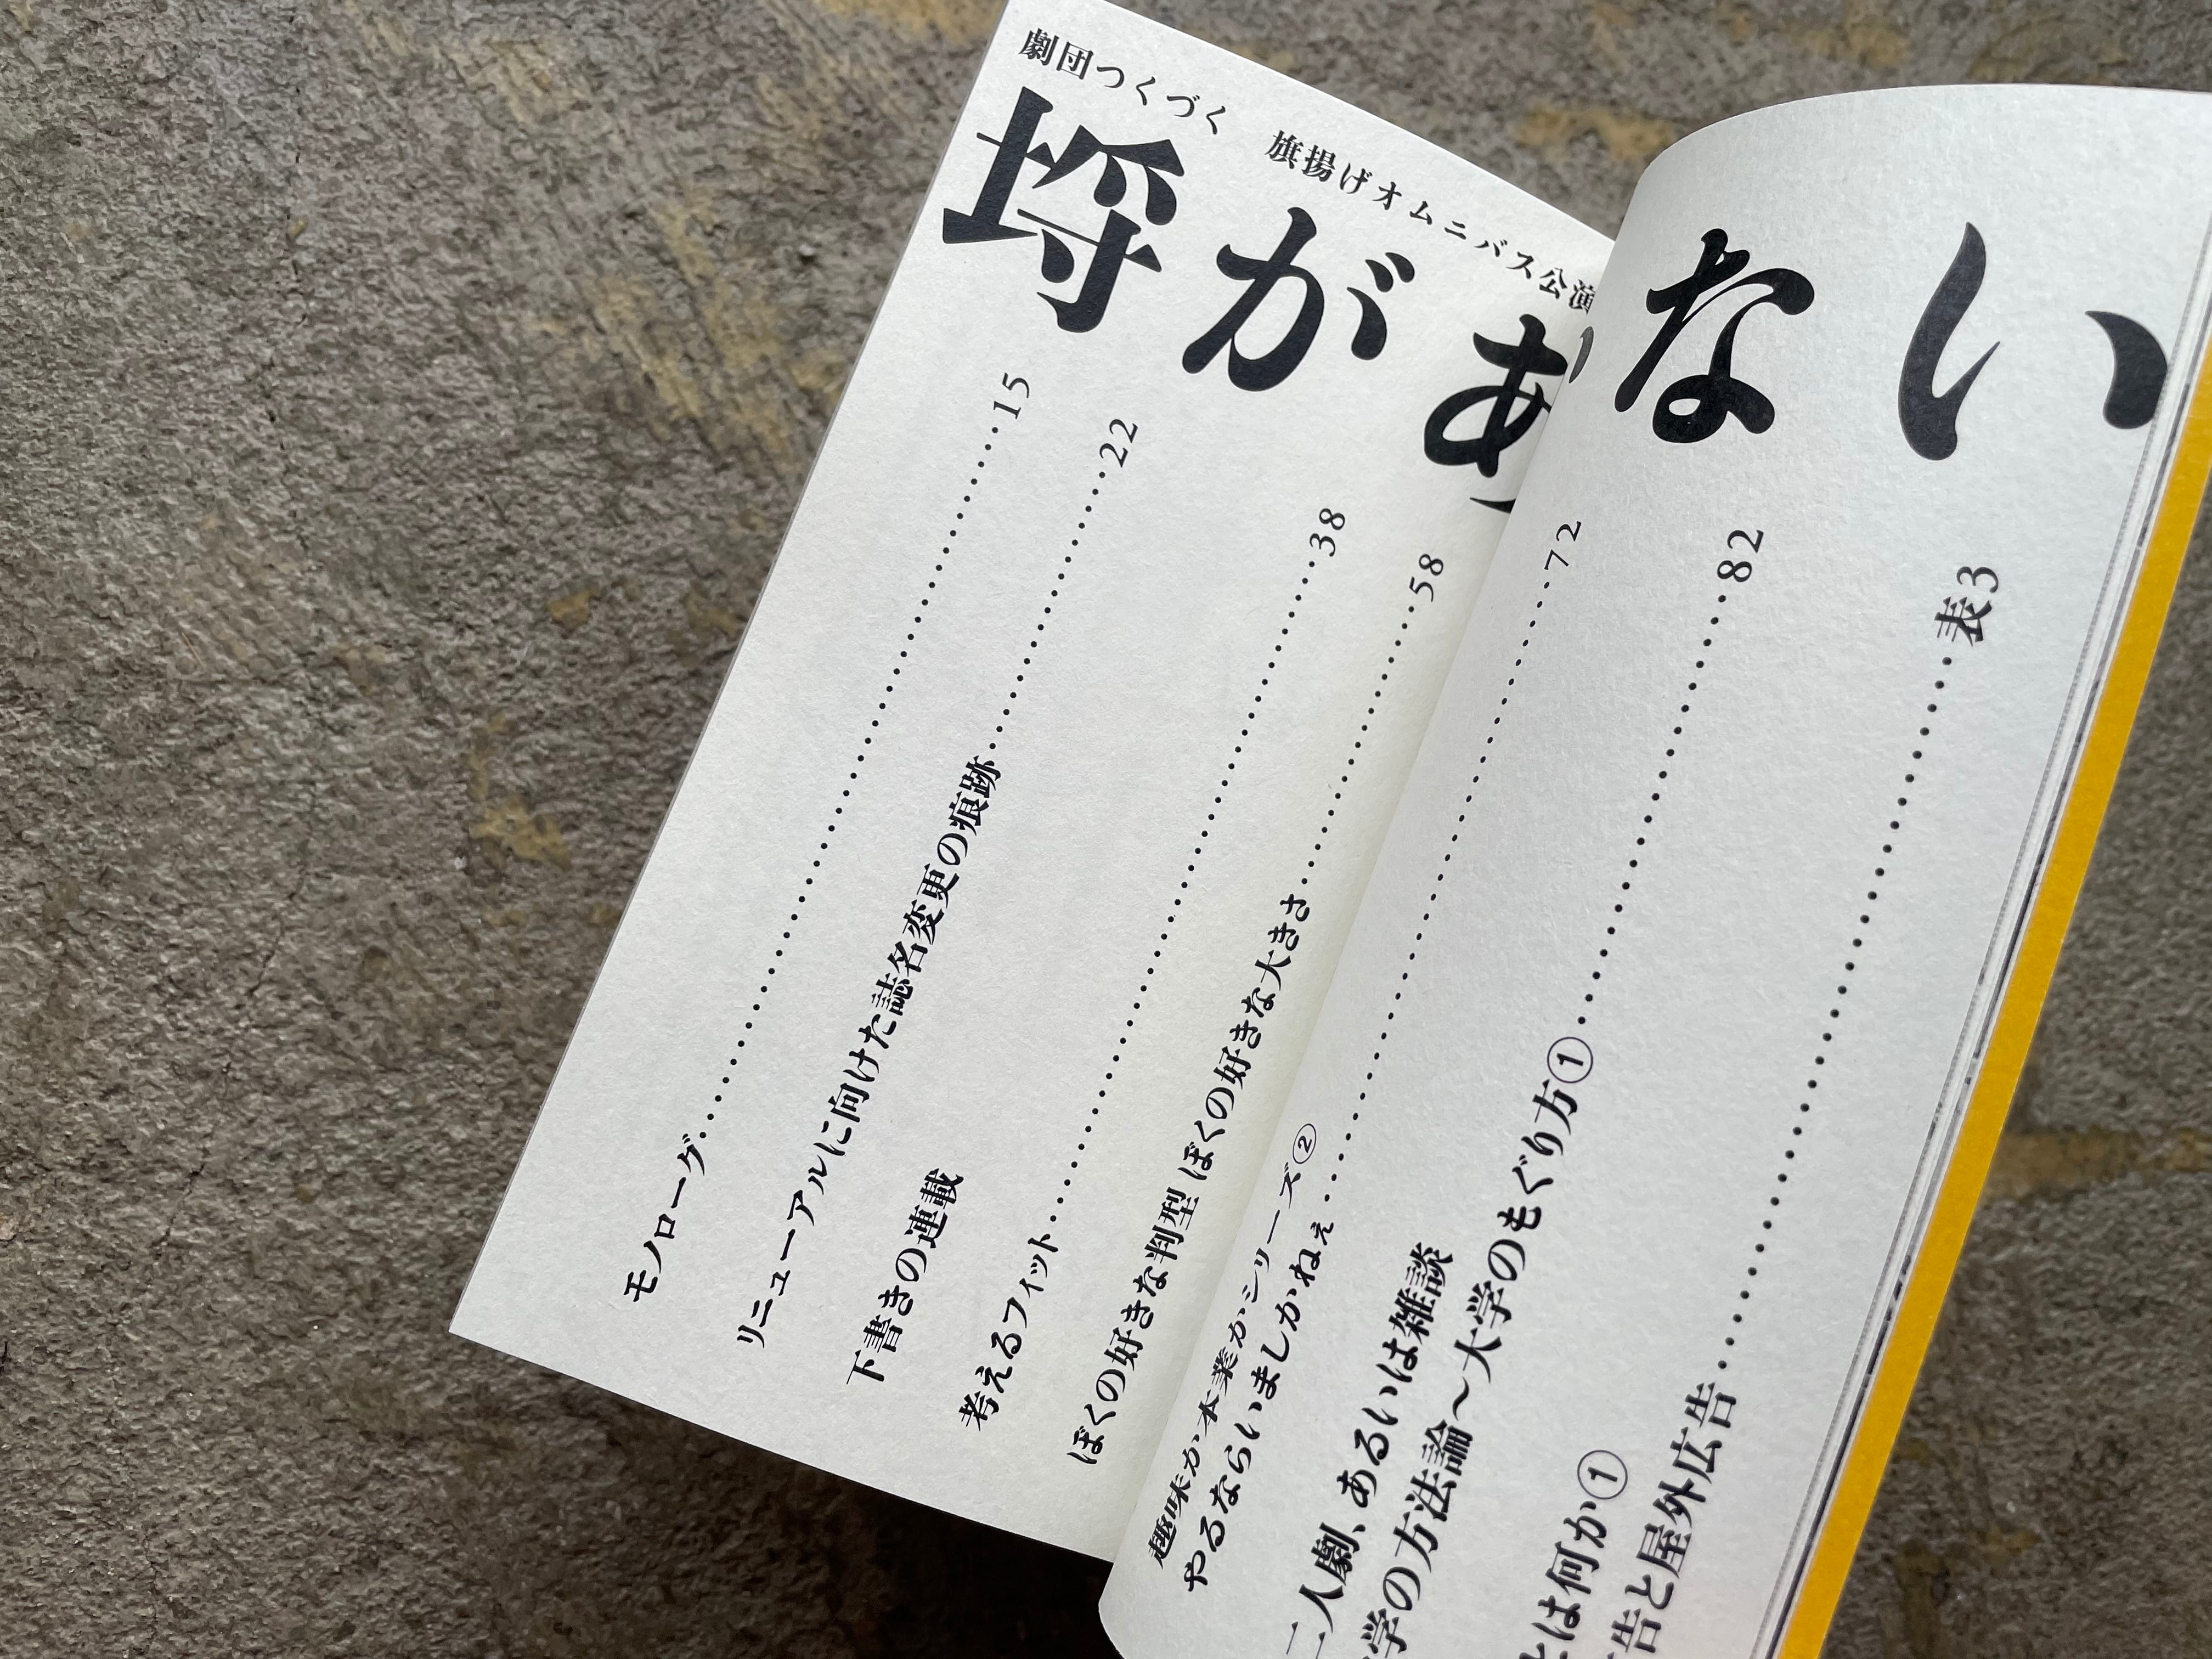 劇団つくづく 旗揚げオムニバス公演
埒があかない
モノローグ……15
リニューアルに向けた誌名変更の痕跡……22
下書きの連載
考えるフィット……38
ぼくの好きな判型 ぼくの好きな大きさ……58
趣味か本業かシリーズ②
やるならいましかねぇ……72
二人劇、あるいは雑談
学の方法論〜大学のもぐり方①……82
とは何か①
告と屋外広告……表3